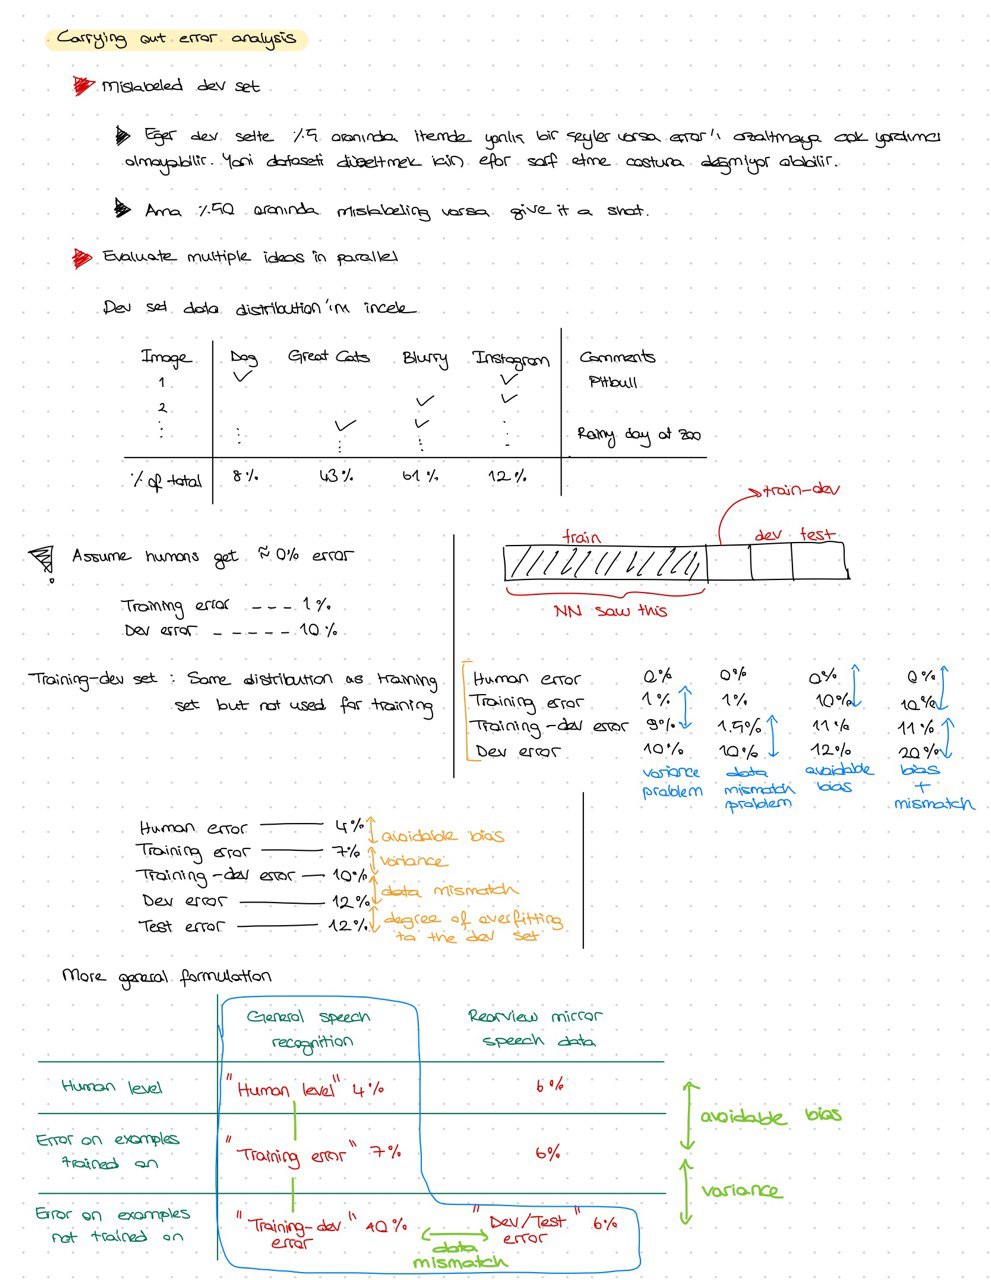 Carrying out error analysis
Mislabeled dev set
Eğer dev sette %5 oranında itemde yanlış bir şeyler varsa error'ı azaltmaya çok yardımcı
olmayabilir. Yani dataseti düzeltmek için efor sarf etme costuna değmiyor olabilir.
Ama %50 oranında mislabeling varsa give it a shot.
Evaluate multiple ideas in parallel
Dev set data distribution'ını incele
Image Dog Great Cats Blurry Instagram Comments
1 ✓ ✓ Pitbull
2 ✓ ✓
⋮ ⋮ ✓ ✓ ⋮ Rainy day at zoo
⋮ ⋮
% of total 8% 43% 61% 12%
Assume humans get ≈ 0% error
Training error --- 1%
Dev error ----- 10%
Training-dev set : Same distribution as training
set but not used for training
train-dev
train dev test
NN saw this
Human error 0% 0% 0% 0%
Training error 1% 1% 10% 10%
Training-dev error 9% 1.5% 11% 11%
Dev error 10% 10% 12% 20%
variance problem
data mismatch problem
avoidable bias
bias + mismatch
Human error 4%
avoidable bias
Training error 7%
variance
Training-dev error 10%
data mismatch
Dev error 12%
degree of overfitting
to the dev set
Test error 12%
More general formulation
General speech recognition
Rearview mirror speech data
Human level "Human level" 4% 6%
avoidable bias
Error on examples trained on "Training error" 7% 6%
variance
Error on examples not trained on "Training-dev" error 10% "Dev/Test" error 6%
data mismatch